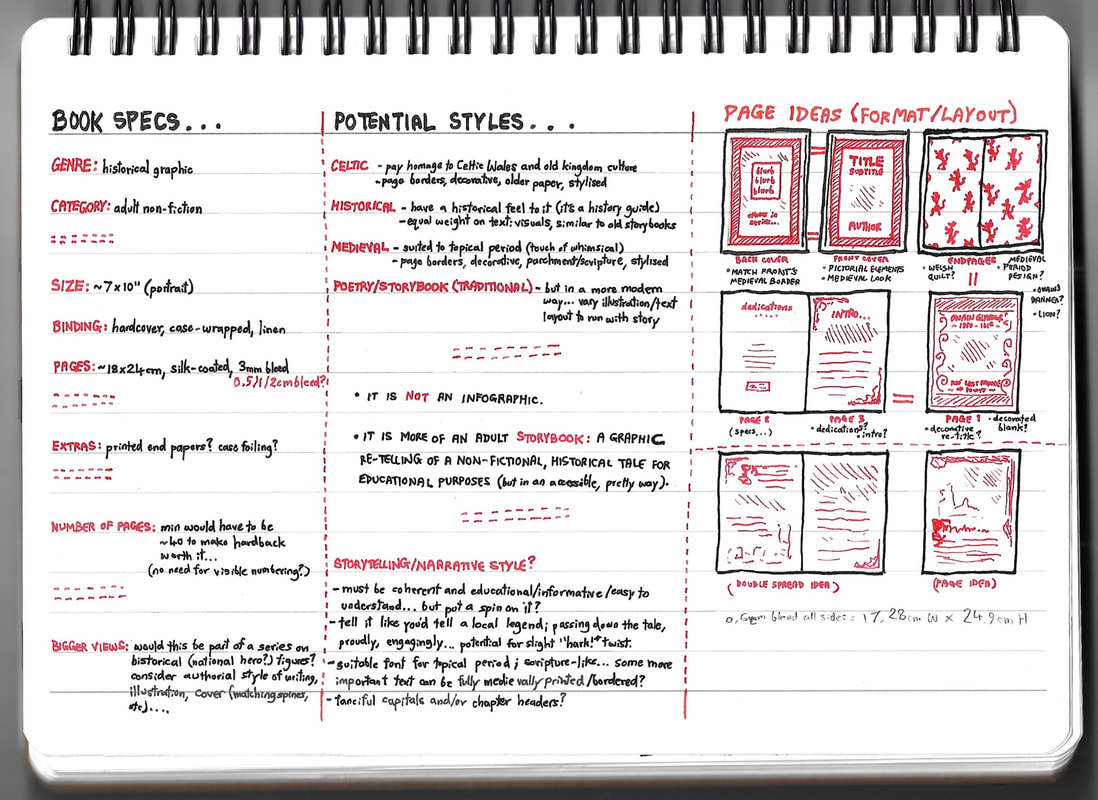 BOOK SPECS...
GENRE: historical graphic
CATEGORY: adult non-fiction
SIZE: ~7x10" (portrait)
BINDING: hardcover, case-wrapped, linen
PAGES: ~18x24cm, silk-coated, 3mm bleed
0.5/1/2cm bleed?
EXTRAS: printed end papers? case foiling?
NUMBER OF PAGES: min would have to be
~40 to make hardback
worth it...
(no need for visible numbering?)
BIGGER VIEWS: would this be part of a series on
historical (national hero?) figures?
consider authorial style of writing,
illustration, cover (matching spines,
etc)....
POTENTIAL STYLES...
CELTIC - pay homage to Celtic Wales and old kingdom culture
- page borders, decorative, older paper, stylised
HISTORICAL - have a historical feel to it (it's a history guide)
- equal weight on text:visuals, similar to old storybooks
MEDIEVAL - suited to topical period (touch of whimsical)
- page borders, decorative, parchment/sculpture, stylised
POETRY/STORYBOOK (TRADITIONAL) - but in a more modern
way... vary illustration/text
layout to run with story
• IT IS NOT AN INFOGRAPHIC.
• IT IS MORE OF AN ADULT STORYBOOK: A GRAPHIC
RE-TELLING OF A NON-FICTIONAL, HISTORICAL TALE FOR
EDUCATIONAL PURPOSES (but in an accessible, pretty way).
STORYTELLING/NARRATIVE STYLE?
- must be coherent and educational/informative/easy to
understand... but put a spin on it?
- tell it like you'd tell a local legend; passing down the tale,
proudly, engagingly... potential for slight "hark!" twist.
- suitable font for topical period; scripture-like... some more
important text can be fully medievally printed/bordered?
- fanciful capitals and/or chapter headers?
PAGE IDEAS (FORMAT/LAYOUT)
blurb
blurb
blurb
series...
TITLE
SUBTITLE
AUTHOR
BACK COVER
• MATCH FRONT'S
MEDIEVAL BORDER
FRONT COVER
• PICTORIAL ELEMENTS
• MEDIEVAL LOOK
ENDPAGES
• WELSH
QUILT?
MEDIEVAL
PERIOD
DESIGN?
• OWAIN'S
BANNER?
• LION?
dedications
INTRO...
OWAIN GLYNDWR
THE LAST PRINCE
PAGE 2
(specs,..)
PAGE 3
• dedications?
• intro?
PAGE 1
• decorative
re-title?
• decorated
blank?
(DOUBLE SPREAD IDEA)
(PAGE IDEA)
0,5cm bleed all sides = 17,28cm W x 24.9cm H